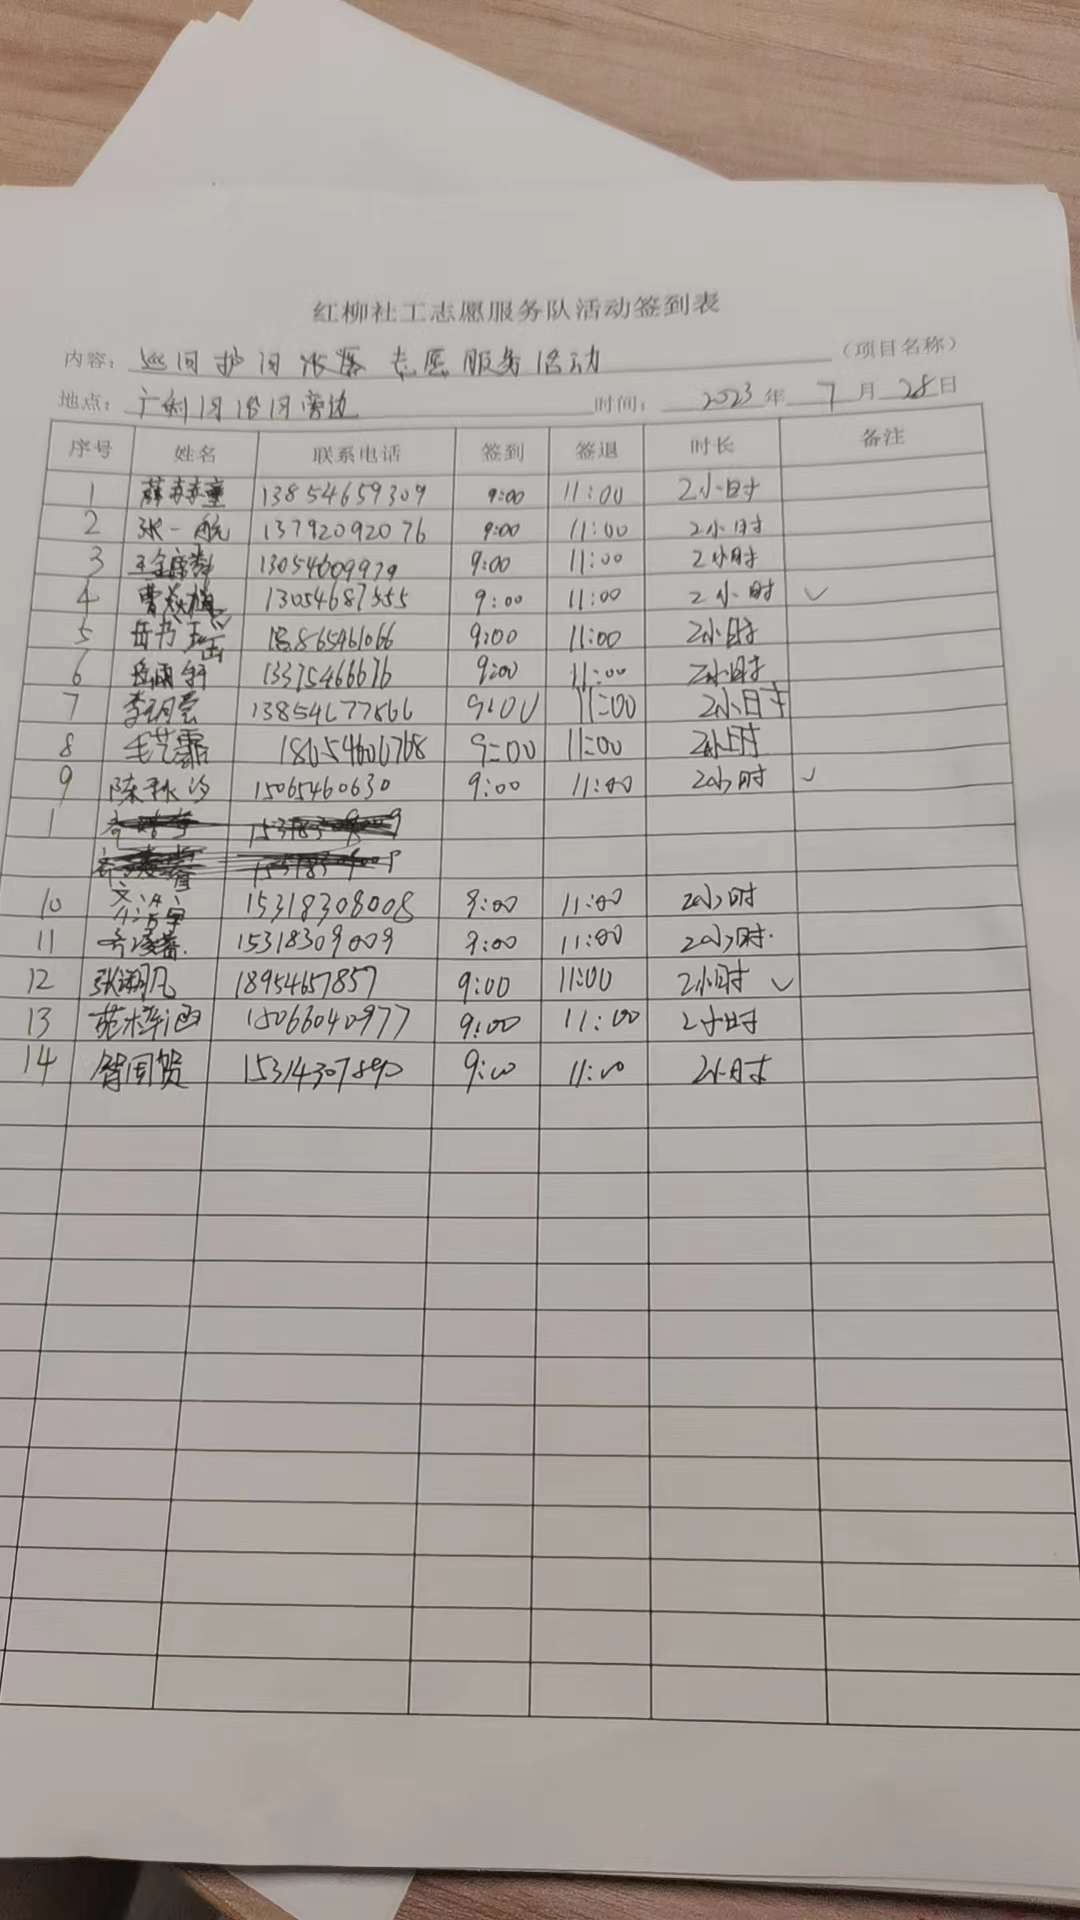 红柳社工志愿服务队活动签到表
内容： 巡河护河 志愿服务活动 （项目名称）
地点： 广利河沿河旁边 时间： 2023 年 7 月 28 日
序号 姓名 联系电话 签到 签退 时长 备注
1 13854659309 9:00 11:00 2小时
2 张一航 13792092076 9:00 11:00 2小时
3 13054609979 9:00 11:00 2小时
4 13054687555 9:00 11:00 2小时 ✓
5 岳书 18865461066 9:00 11:00 2小时
6 岳雨轩 13375466676 9:00 11:00 2小时
7 9:00 11:00 2小时
8 毛艺霏 18654600768 9:00 11:00 2小时
9 陈秋汐 15065460630 9:00 11:00 2小时 ✓
1
10 15318308008 9:00 11:00 2小时
11 15318309009 9:00 11:00 2小时.
12 张翊凡 18954657857 9:00 11:00 2小时 ✓
13 苑梓涵 18066040977 9:00 11:00 2小时
14 15314307890 9:00 11:00 2小时